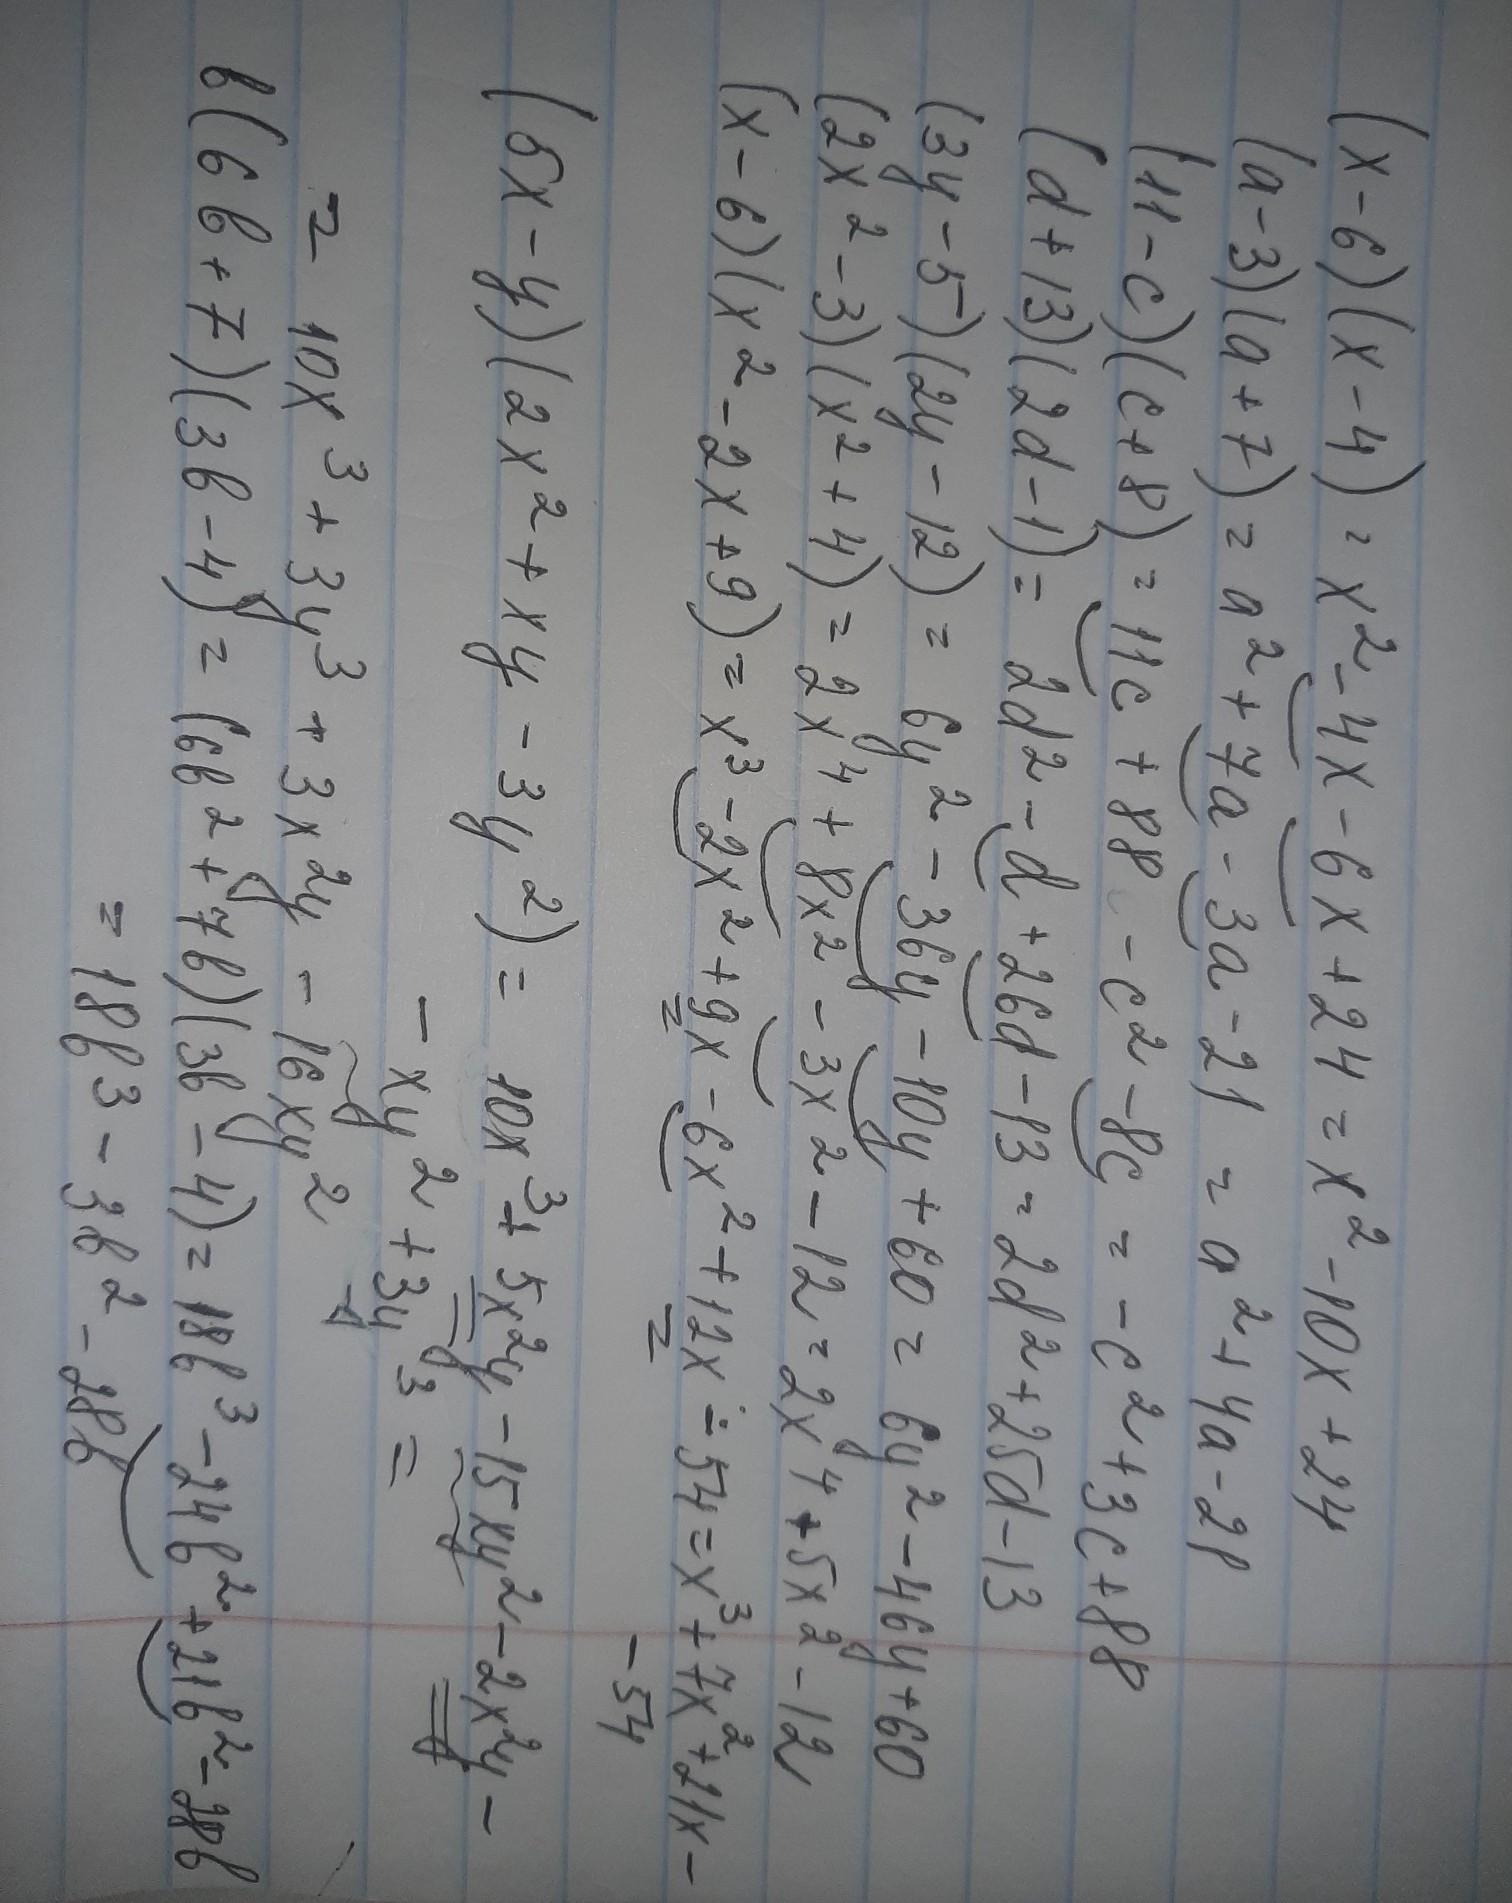 (x-6)(x-4) = x²-4x-6x+24 = x²-10x+24
(a-3)(a+7) = a²+7a-3a-21 = a²+4a-21
(11-c)(c+8) = 11c+88-c²-8c = -c²+3c+88
(d+13)(2d-1) = 2d2-d+26d-13 = 2d²+25d-13
(3y-5)(2y-12) = 6y²-36y-10y+60 = 6y²-46y+60
(2x²-3)(x²+4) = 2x⁴+8x²-3x²-12 = 2x⁴+5x²-12
(x-6)(x²-2x+9) = x³-2x²+9x-6x²+12x-54 = x³+7x²+21x-
-54
(5x-y)(2x²+xy-3y²) = 10x³+5x²y-15xy²-2x²y-
-xy²+3y³ =
= 10x³+3y³+3x²y-16xy²
b(6b+7)(3b-4) = (6b²+7b)(3b-4) = 18b³-24b²+21b²-28b
= 18b³-3b²-28b